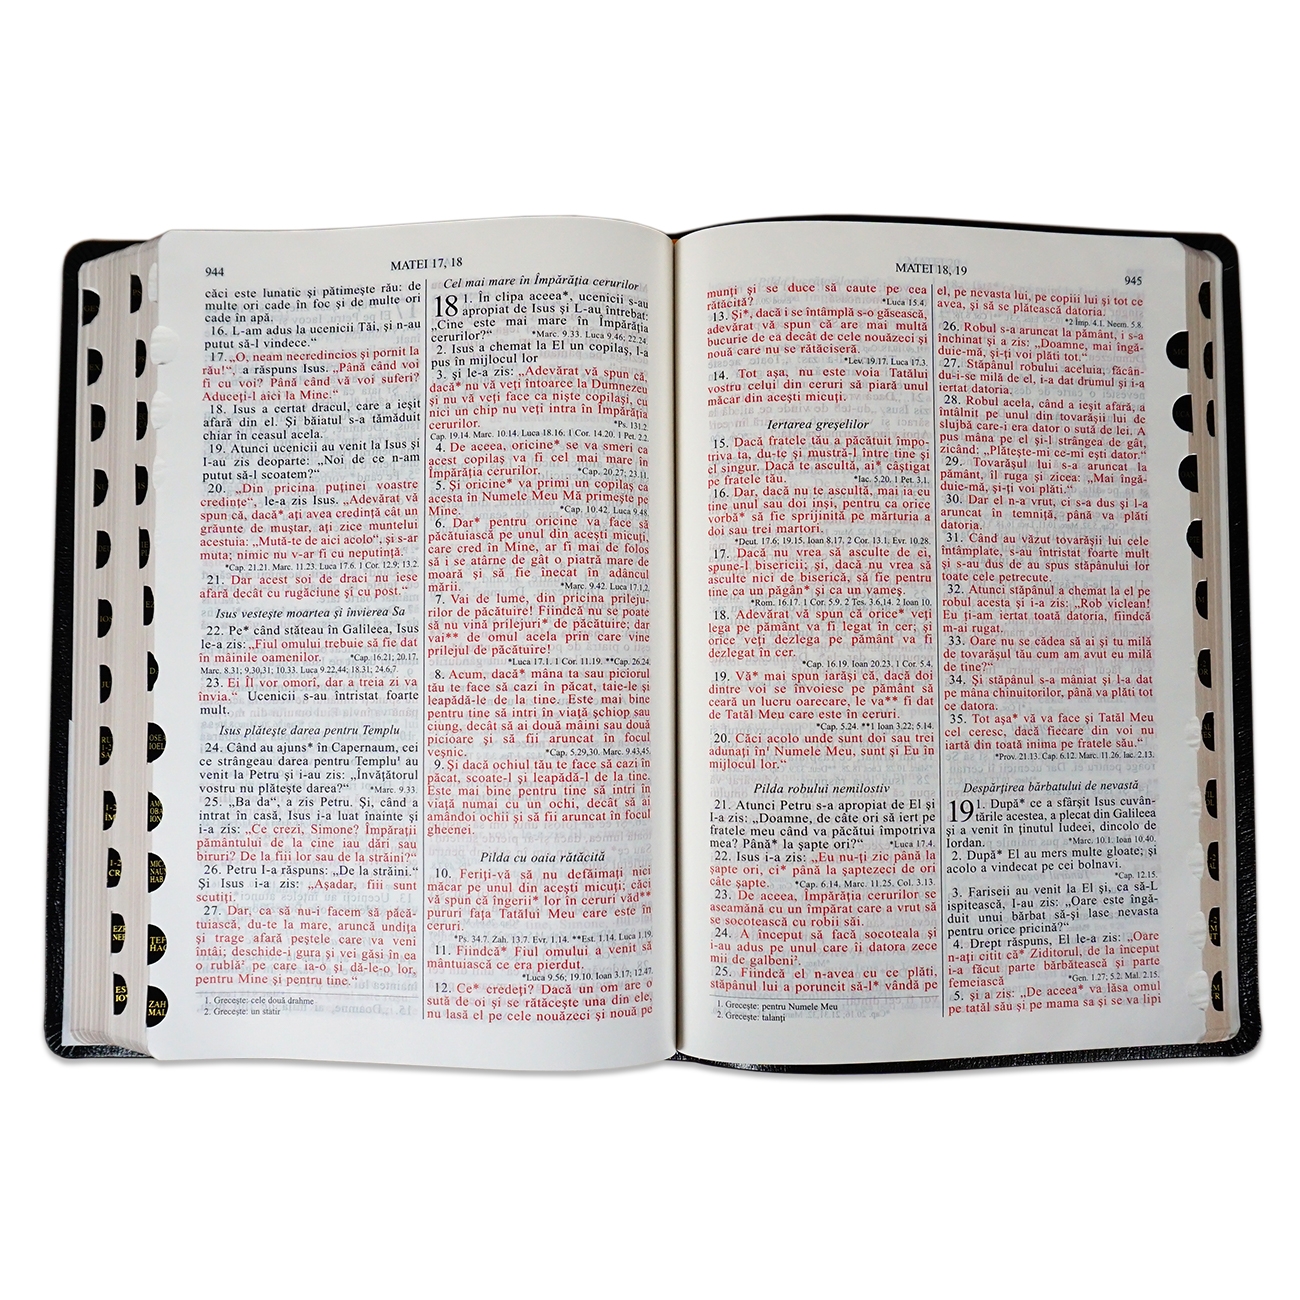 944
MATEI 17, 18
căci este lunatic și pătimește rău: de
multe ori cade în foc și de multe ori
cade în apă.
16. L-am adus la ucenicii Tăi, și n-au
putut să-l vindece.“
17. „O, neam necredincios și pornit la
rău!“, a răspuns Isus. „Până când voi
fi cu voi? Până când vă voi suferi?
Aduceți-l aici la Mine.“
18. Isus a certat dracul, care a ieșit
afară din el. Și băiatul s-a tămăduit
chiar în ceasul acela.
19. Atunci ucenicii au venit la Isus și
I-au zis deoparte: „Noi de ce n-am
putut să-l scoatem?“
20. „Din pricina puținei voastre
credințe“, le-a zis Isus. „Adevărat vă
spun că, dacă* ați avea credință cât un
grăunte de muștar, ați zice muntelui
acestuia: „Mută-te de aici acolo“, și s-ar
muta; nimic nu v-ar fi cu neputință.“
*Cap. 21.21. Marc. 11.23. Luca 17.6. 1 Cor. 12.9; 13.2.
21. Dar acest soi de draci nu iese
afară decât cu rugăciune și cu post.“
Isus vestește moartea și învierea Sa
22. Pe* când stăteau în Galileea, Isus
le-a zis: „Fiul omului trebuie să fie dat
în mâinile oamenilor. *Cap. 16.21; 20.17.
Marc. 8.31; 9.30,31; 10.33. Luca 9.22,44; 18.31; 24.6,7.
23. Ei Îl vor omorî, dar a treia zi va
învia.“ Ucenicii s-au întristat foarte
mult.
Isus plătește darea pentru Templu
24. Când au ajuns* în Capernaum, cei
ce strângeau darea pentru Templu¹ au
venit la Petru și i-au zis: „Învățătorul
vostru nu plătește darea?“ *Marc. 9.33.
25. „Ba da“, a zis Petru. Și, când a
intrat în casă, Isus i-a luat înainte și
i-a zis: „Ce crezi, Simone? Împărații
pământului de la cine iau dări sau
biruri? De la fiii lor sau de la străini?“
26. Petru I-a răspuns: „De la străini.“
Și Isus i-a zis: „Așadar, fiii sunt
scutiți.
27. Dar, ca să nu-i facem să păcă-
tuiască, du-te la mare, aruncă undița
și trage afară peștele care va veni
întâi; deschide-i gura și vei găsi în ea
o rublă² pe care ia-o și dă-le-o lor,
pentru Mine și pentru tine.“
1. Grecește: cele două drahme
2. Grecește: un statir
Cel mai mare în Împărăția cerurilor
18 1. În clipa aceea*, ucenicii s-au
apropiat de Isus și L-au întrebat:
„Cine este mai mare în Împărăția
cerurilor?“ *Marc. 9.33. Luca 9.46; 22.24.
2. Isus a chemat la El un copilaș, l-a
pus în mijlocul lor
3. și le-a zis: „Adevărat vă spun că,
dacă* nu vă veți întoarce la Dumnezeu
și nu vă veți face ca niște copilași, cu
nici un chip nu veți intra în Împărăția
cerurilor. *Ps. 131.2.
Cap. 19.14. Marc. 10.14. Luca 18.16. 1 Cor. 14.20. 1 Pet. 2.2.
4. De aceea, oricine* se va smeri ca
acest copilaș va fi cel mai mare în
Împărăția cerurilor. *Cap. 20.27; 23.11.
5. Și oricine* va primi un copilaș ca
acesta în Numele Meu Mă primește pe
Mine. *Cap. 10.42. Luca 9.48.
6. Dar* pentru oricine va face să
păcătuiască pe unul din acești micuți,
care cred în Mine, ar fi mai de folos
să i se atârne de gât o piatră mare de
moară și să fie înecat în adâncul
mării. *Marc. 9.42. Luca 17.1,2.
7. Vai de lume, din pricina prileju-
rilor de păcătuire! Fiindcă nu se poate
să nu vină prilejuri* de păcătuire; dar
vai** de omul acela prin care vine
prilejul de păcătuire!
*Luca 17.1. 1 Cor. 11.19. **Cap. 26.24.
8. Acum, dacă* mâna ta sau piciorul
tău te face să cazi în păcat, taie-le și
leapădă-le de la tine. Este mai bine
pentru tine să intri în viață șchiop sau
ciung, decât să ai două mâini sau două
picioare și să fii aruncat în focul
veșnic. *Cap. 5.29,30. Marc. 9.43,45.
9. Și dacă ochiul tău te face să cazi în
păcat, scoate-l și leapădă-l de la tine.
Este mai bine pentru tine să intri în
viață numai cu un ochi, decât să ai
amândoi ochii și să fii aruncat în focul
gheenei.
Pilda cu oaia rătăcită
10. Feriți-vă să nu defăimați nici
măcar pe unul din acești micuți; căci
vă spun că îngerii* lor în ceruri văd**
pururi fața Tatălui Meu care este în
ceruri.
*Ps. 34.7. Zah. 13.7. Evr. 1.14. **Est. 1.14. Luca 1.19.
11. Fiindcă* Fiul omului a venit să
mântuiască ce era pierdut.
*Luca 9.56; 19.10. Ioan 3.17; 12.47.
12. Ce* credeți? Dacă un om are o
sută de oi și se rătăcește una din ele,
nu lasă el pe cele nouăzeci și nouă pe
MATEI 18, 19
945
munți și se duce să caute pe cea
rătăcită? *Luca 15.4.
13. Și*, dacă i se întâmplă s-o găsească,
adevărat vă spun că are mai multă
bucurie de ea decât de cele nouăzeci și
nouă care nu se rătăciseră.
*Lev. 19.17. Luca 17.3.
14. Tot așa, nu este voia Tatălui
vostru celui din ceruri să piară unul
măcar din acești micuți.
Iertarea greșelilor
15. Dacă fratele tău a păcătuit împo-
triva ta, du-te și mustră-l între tine și
el singur. Dacă te ascultă, ai* câștigat
pe fratele tău. *Iac. 5.20. 1 Pet. 3.1.
16. Dar, dacă nu te ascultă, mai ia cu
tine unul sau doi inși, pentru ca orice
vorbă* să fie sprijinită pe mărturia a
doi sau trei martori.
*Deut. 17.6; 19.15. Ioan 8.17. 2 Cor. 13.1. Evr. 10.28.
17. Dacă nu vrea să asculte de ei,
spune-l bisericii; și, dacă nu vrea să
asculte nici de biserică, să fie pentru
tine ca un păgân* și ca un vameș.
*Rom. 16.17. 1 Cor. 5.9. 2 Tes. 3.6,14. 2 Ioan 10.
18. Adevărat vă spun că orice* veți
lega pe pământ va fi legat în cer; și
orice veți dezlega pe pământ va fi
dezlegat în cer.
*Cap. 16.19. Ioan 20.23. 1 Cor. 5.4.
19. Vă* mai spun iarăși că, dacă doi
dintre voi se învoiesc pe pământ să
ceară un lucru oarecare, le va** fi dat
de Tatăl Meu care este în ceruri.
*Cap. 5.24. **1 Ioan 3.22; 5.14.
20. Căci acolo unde sunt doi sau trei
adunați în¹ Numele Meu, sunt și Eu în
mijlocul lor.“
Pilda robului nemilostiv
21. Atunci Petru s-a apropiat de El și
I-a zis: „Doamne, de câte ori să iert pe
fratele meu când va păcătui împotriva
mea? Până* la șapte ori?“ *Luca 17.4.
22. Isus i-a zis: „Eu nu-ți zic până la
șapte ori, ci* până la șaptezeci de ori
câte șapte. *Cap. 6.14. Marc. 11.25. Col. 3.13.
23. De aceea, Împărăția cerurilor se
aseamănă cu un împărat care a vrut să
se socotească cu robii săi.
24. A început să facă socoteala și
i-au adus pe unul care îi datora zece
mii de galbeni².
25. Fiindcă el n-avea cu ce plăti,
stăpânul lui a poruncit să-l* vândă pe
1. Grecește: pentru Numele Meu
2. Grecește: talanți
el, pe nevasta lui, pe copiii lui și tot ce
avea, și să se plătească datoria.
*2 Împ. 4.1. Neem. 5.8.
26. Robul s-a aruncat la pământ, i s-a
închinat și a zis: „Doamne, mai îngă-
duie-mă, și-ți voi plăti tot.“
27. Stăpânul robului aceluia, făcân-
du-i-se milă de el, i-a dat drumul și i-a
iertat datoria.
28. Robul acela, când a ieșit afară, a
întâlnit pe unul din tovarășii lui de
slujbă care-i era dator o sută de lei. A
pus mâna pe el și-l strângea de gât,
zicând: „Plătește-mi ce-mi ești dator.“
29. Tovarășul lui s-a aruncat la
pământ, îl ruga și zicea: „Mai îngă-
duie-mă, și-ți voi plăti.“
30. Dar el n-a vrut, ci s-a dus și l-a
aruncat în temniță, până va plăti
datoria.
31. Când au văzut tovarășii lui cele
întâmplate, s-au întristat foarte mult
și s-au dus de au spus stăpânului lor
toate cele petrecute.
32. Atunci stăpânul a chemat la el pe
robul acesta și i-a zis: „Rob viclean!
Eu ți-am iertat toată datoria, fiindcă
m-ai rugat.
33. Oare nu se cădea să ai și tu milă
de tovarășul tău cum am avut eu milă
de tine?“
34. Și stăpânul s-a mâniat și l-a dat
pe mâna chinuitorilor, până va plăti tot
ce datora.
35. Tot așa* vă va face și Tatăl Meu
cel ceresc, dacă fiecare din voi nu
iartă din toată inima pe fratele său.“
*Prov. 21.13. Cap. 6.12. Marc. 11.26. Iac. 2.13.
Despărțirea bărbatului de nevastă
19 1. După* ce a sfârșit Isus cuvân-
tările acestea, a plecat din Galileea
și a venit în ținutul Iudeei, dincolo de
Iordan. *Marc. 10.1. Ioan 10.40.
2. După* El au mers multe gloate; și
acolo a vindecat pe cei bolnavi.
*Cap. 12.15.
3. Fariseii au venit la El și, ca să-L
ispitească, I-au zis: „Oare este îngă-
duit unui bărbat să-și lase nevasta
pentru orice pricină?“
4. Drept răspuns, El le-a zis: „Oare
n-ați citit că* Ziditorul, de la început
i-a făcut parte bărbătească și parte
femeiască *Gen. 1.27; 5.2. Mal. 2.15.
5. și a zis: „De aceea* va lăsa omul
pe tatăl său și pe mama sa și se va lipi